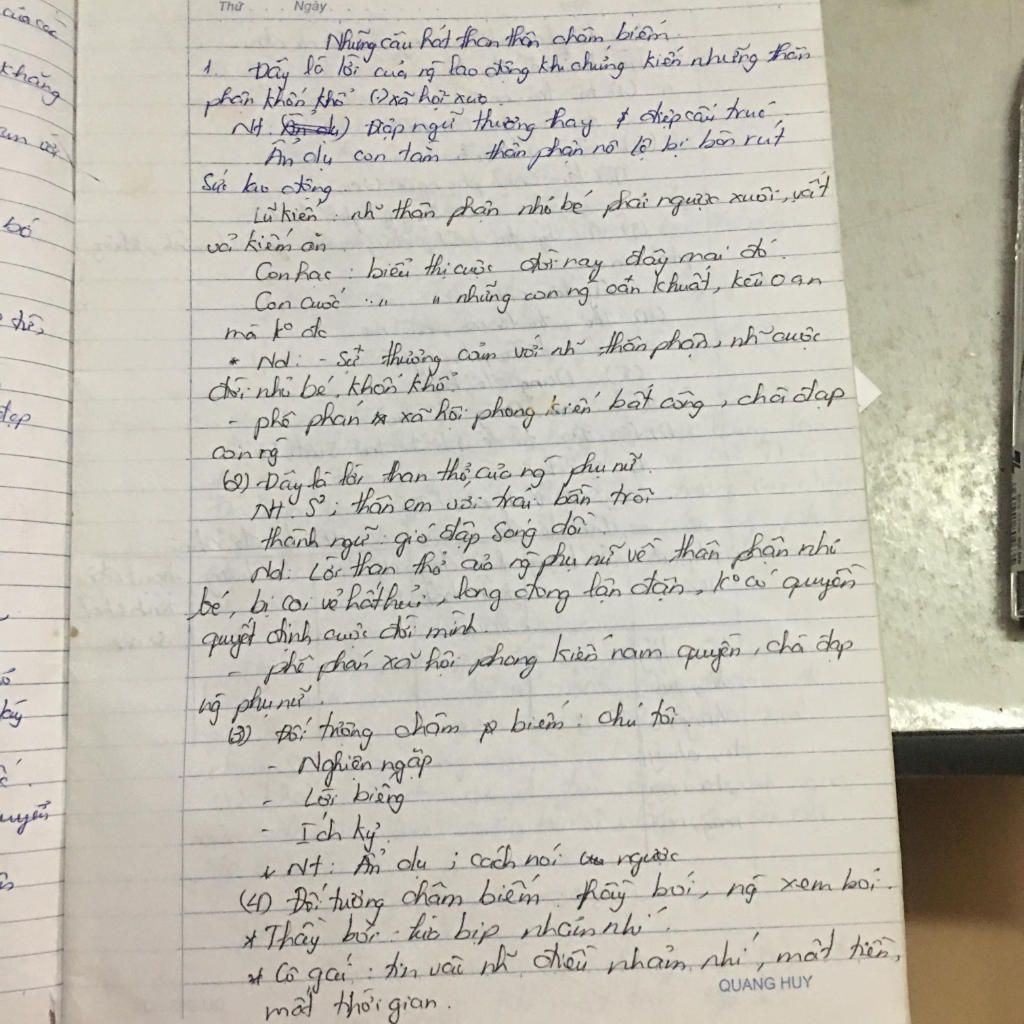 Thứ Ngày
Những câu hát than thân châm biếm
1. Đây là lời của ng lao động khi chứng kiến những thân
phận khốn khổ (-) xã hội xưa.
NT. Điệp ngữ thương hay & điệp cấu trúc
Ẩn dụ con tằm. thân phận nô lệ bị bòn rút
Sức lao động.
Lũ kiến: nh~ thân phận nhỏ bé phải ngược xuôi, vất
vả kiếm ăn
Con hạc: biểu thị cuộc đời nay đây mai đó.
Con cuốc " " những con ng oan khuất, kêu oan
mà ko đc
* Nd: - Sự thương cảm với nh~ thân phận, nh~ cuộc
đời nhỏ bé, khốn khổ.
- phê phán xã hội phong kiến bất công, chà đạp
con ng
(2) Đây là lời than thở của ng phụ nữ.
NT. S²: thân em với trái bần trôi
thành ngữ: gió dập sóng dồi
Nd: Lời than thở của ng phụ nữ về thân phận nhỏ
bé, bị coi hắt hủi, long đong lận đận, ko có quyền
quyết định cuộc đời mình.
- phê phán xã hội phong kiến nam quyền, chà đạp
ng phụ nữ.
(3) Đối tượng châm biếm: chú tôi.
- Nghiện ngập
- Lười biếng
- Ích kỷ
* NT: Ẩn dụ; cách nói ngược
(4) Đối tượng châm biếm thầy bói, ng xem bói.
* Thầy bói: lừa bịp nhảm nhí.
* Cô gái: tin vào nh~ điều nhảm nhí, mất tiền,
mất thời gian.
QUANG HUY